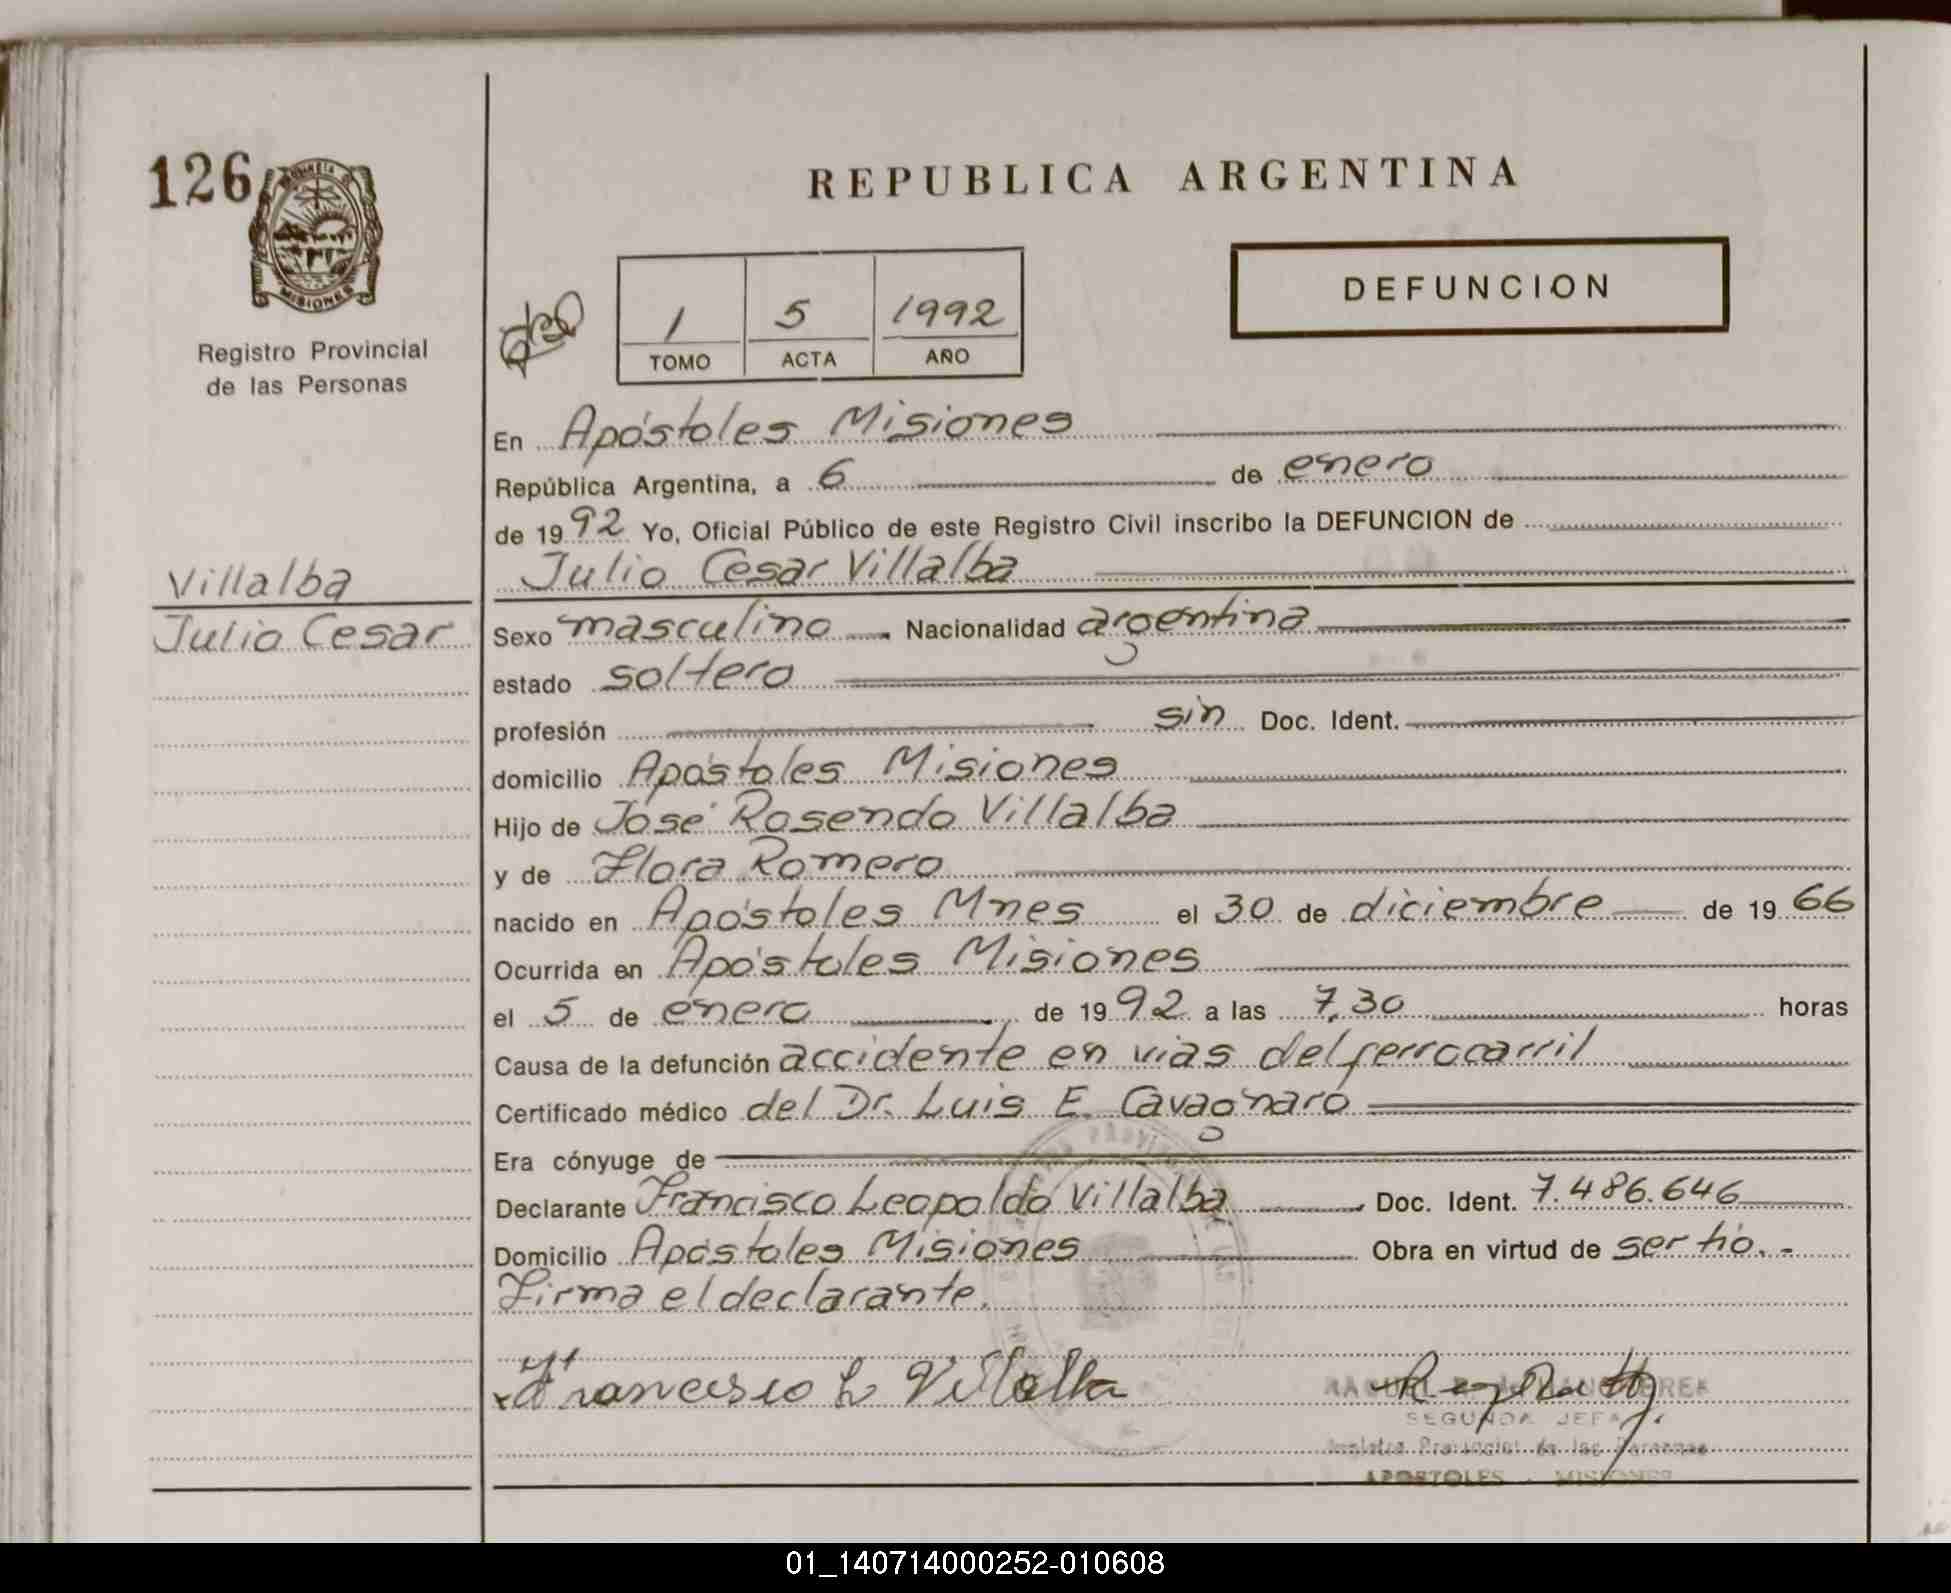 126
PROVINCIA DE
MISIONES
Registro Provincial
de las Personas
Villalba
Julio Cesar
REPUBLICA ARGENTINA
DEFUNCION
1 5 1992
TOMO ACTA AÑO
En Apóstoles Misiones
República Argentina, a 6 de enero
de 1992 Yo, Oficial Público de este Registro Civil inscribo la DEFUNCION de
Julio Cesar Villalba
Sexo masculino Nacionalidad argentina
estado soltero
profesión sin Doc. Ident.
domicilio Apóstoles Misiones
Hijo de José Rosendo Villalba
y de Flora Romero
nacido en Apóstoles Mnes el 30 de diciembre de 1966
Ocurrida en Apóstoles Misiones
el 5 de enero de 1992 a las 7,30 horas
Causa de la defunción accidente en vias del ferrocarril
Certificado médico del Dr. Luis E. Cavagnaro
Era cónyuge de
Declarante Francisco Leopoldo Villalba Doc. Ident. 7.486.646
Domicilio Apóstoles Misiones Obra en virtud de ser tío.-
Firma el declarante.
Francisco L Villalba
SEGUNDA JEFA
Registro Provincial de las Personas
APOSTOLES - MISIONES
01_140714000252-010608